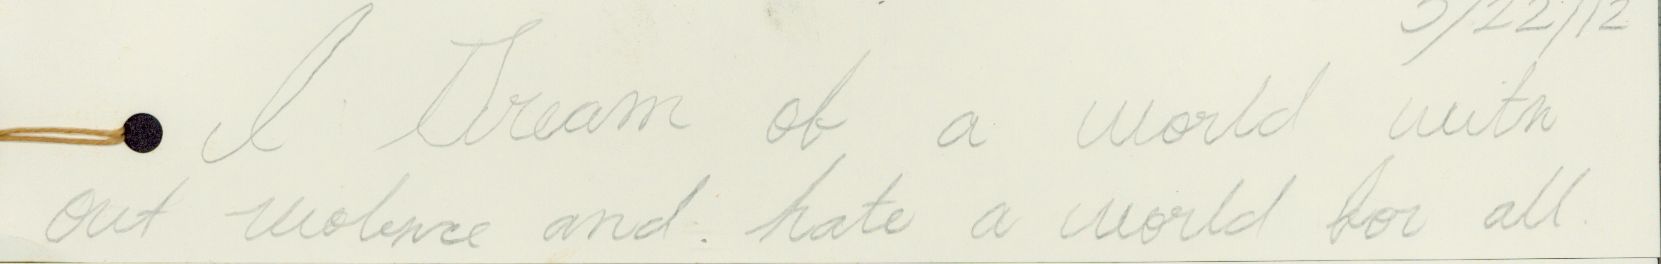 5/22/12
I Dream of a world with
out violence and. hate a world for all.